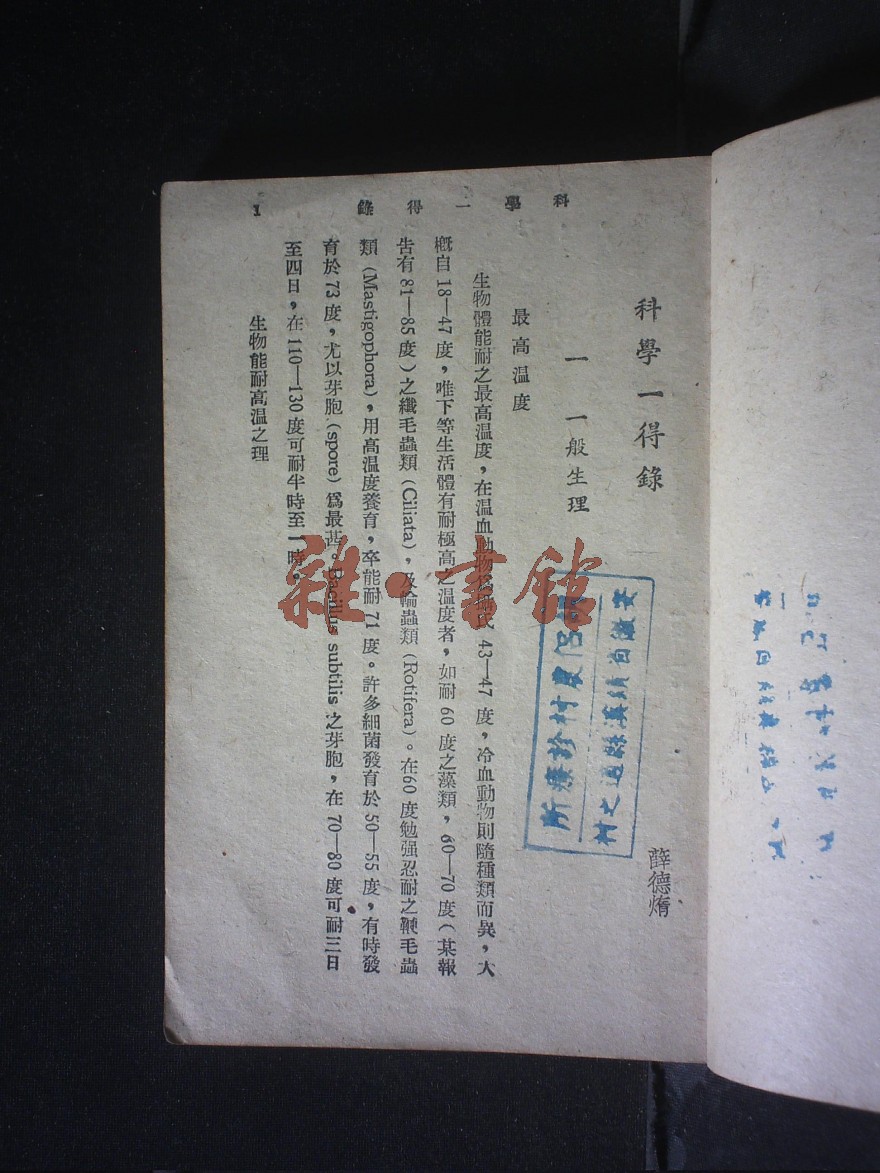 科學一得錄 1
科學一得錄
薛德焴
一 一般生理
最高温度
生物體能耐之最高温度，在温血動物 43—47 度，冷血動物則隨種類而異，大
槪自 18—47 度，唯下等生活體有耐極高之温度者，如耐 60 度之藻類，60—70 度（某報
告有 81—85 度）之纖毛蟲類 (Ciliata)，及輪蟲類 (Rotifera)。在60 度勉强忍耐之鞭毛蟲
類 (Mastigophora)，用高温度養育，卒能耐 71 度。許多細菌發育於 50—55 度，有時發
育於 73 度，尤以芽胞 (spore) 爲最甚。Bacillus subtilis 之芽胞，在 70—80 度可耐三日
至四日，在 110—130 度可耐半時至一時。
生物能耐高温之理
農村診療所
雜·書館